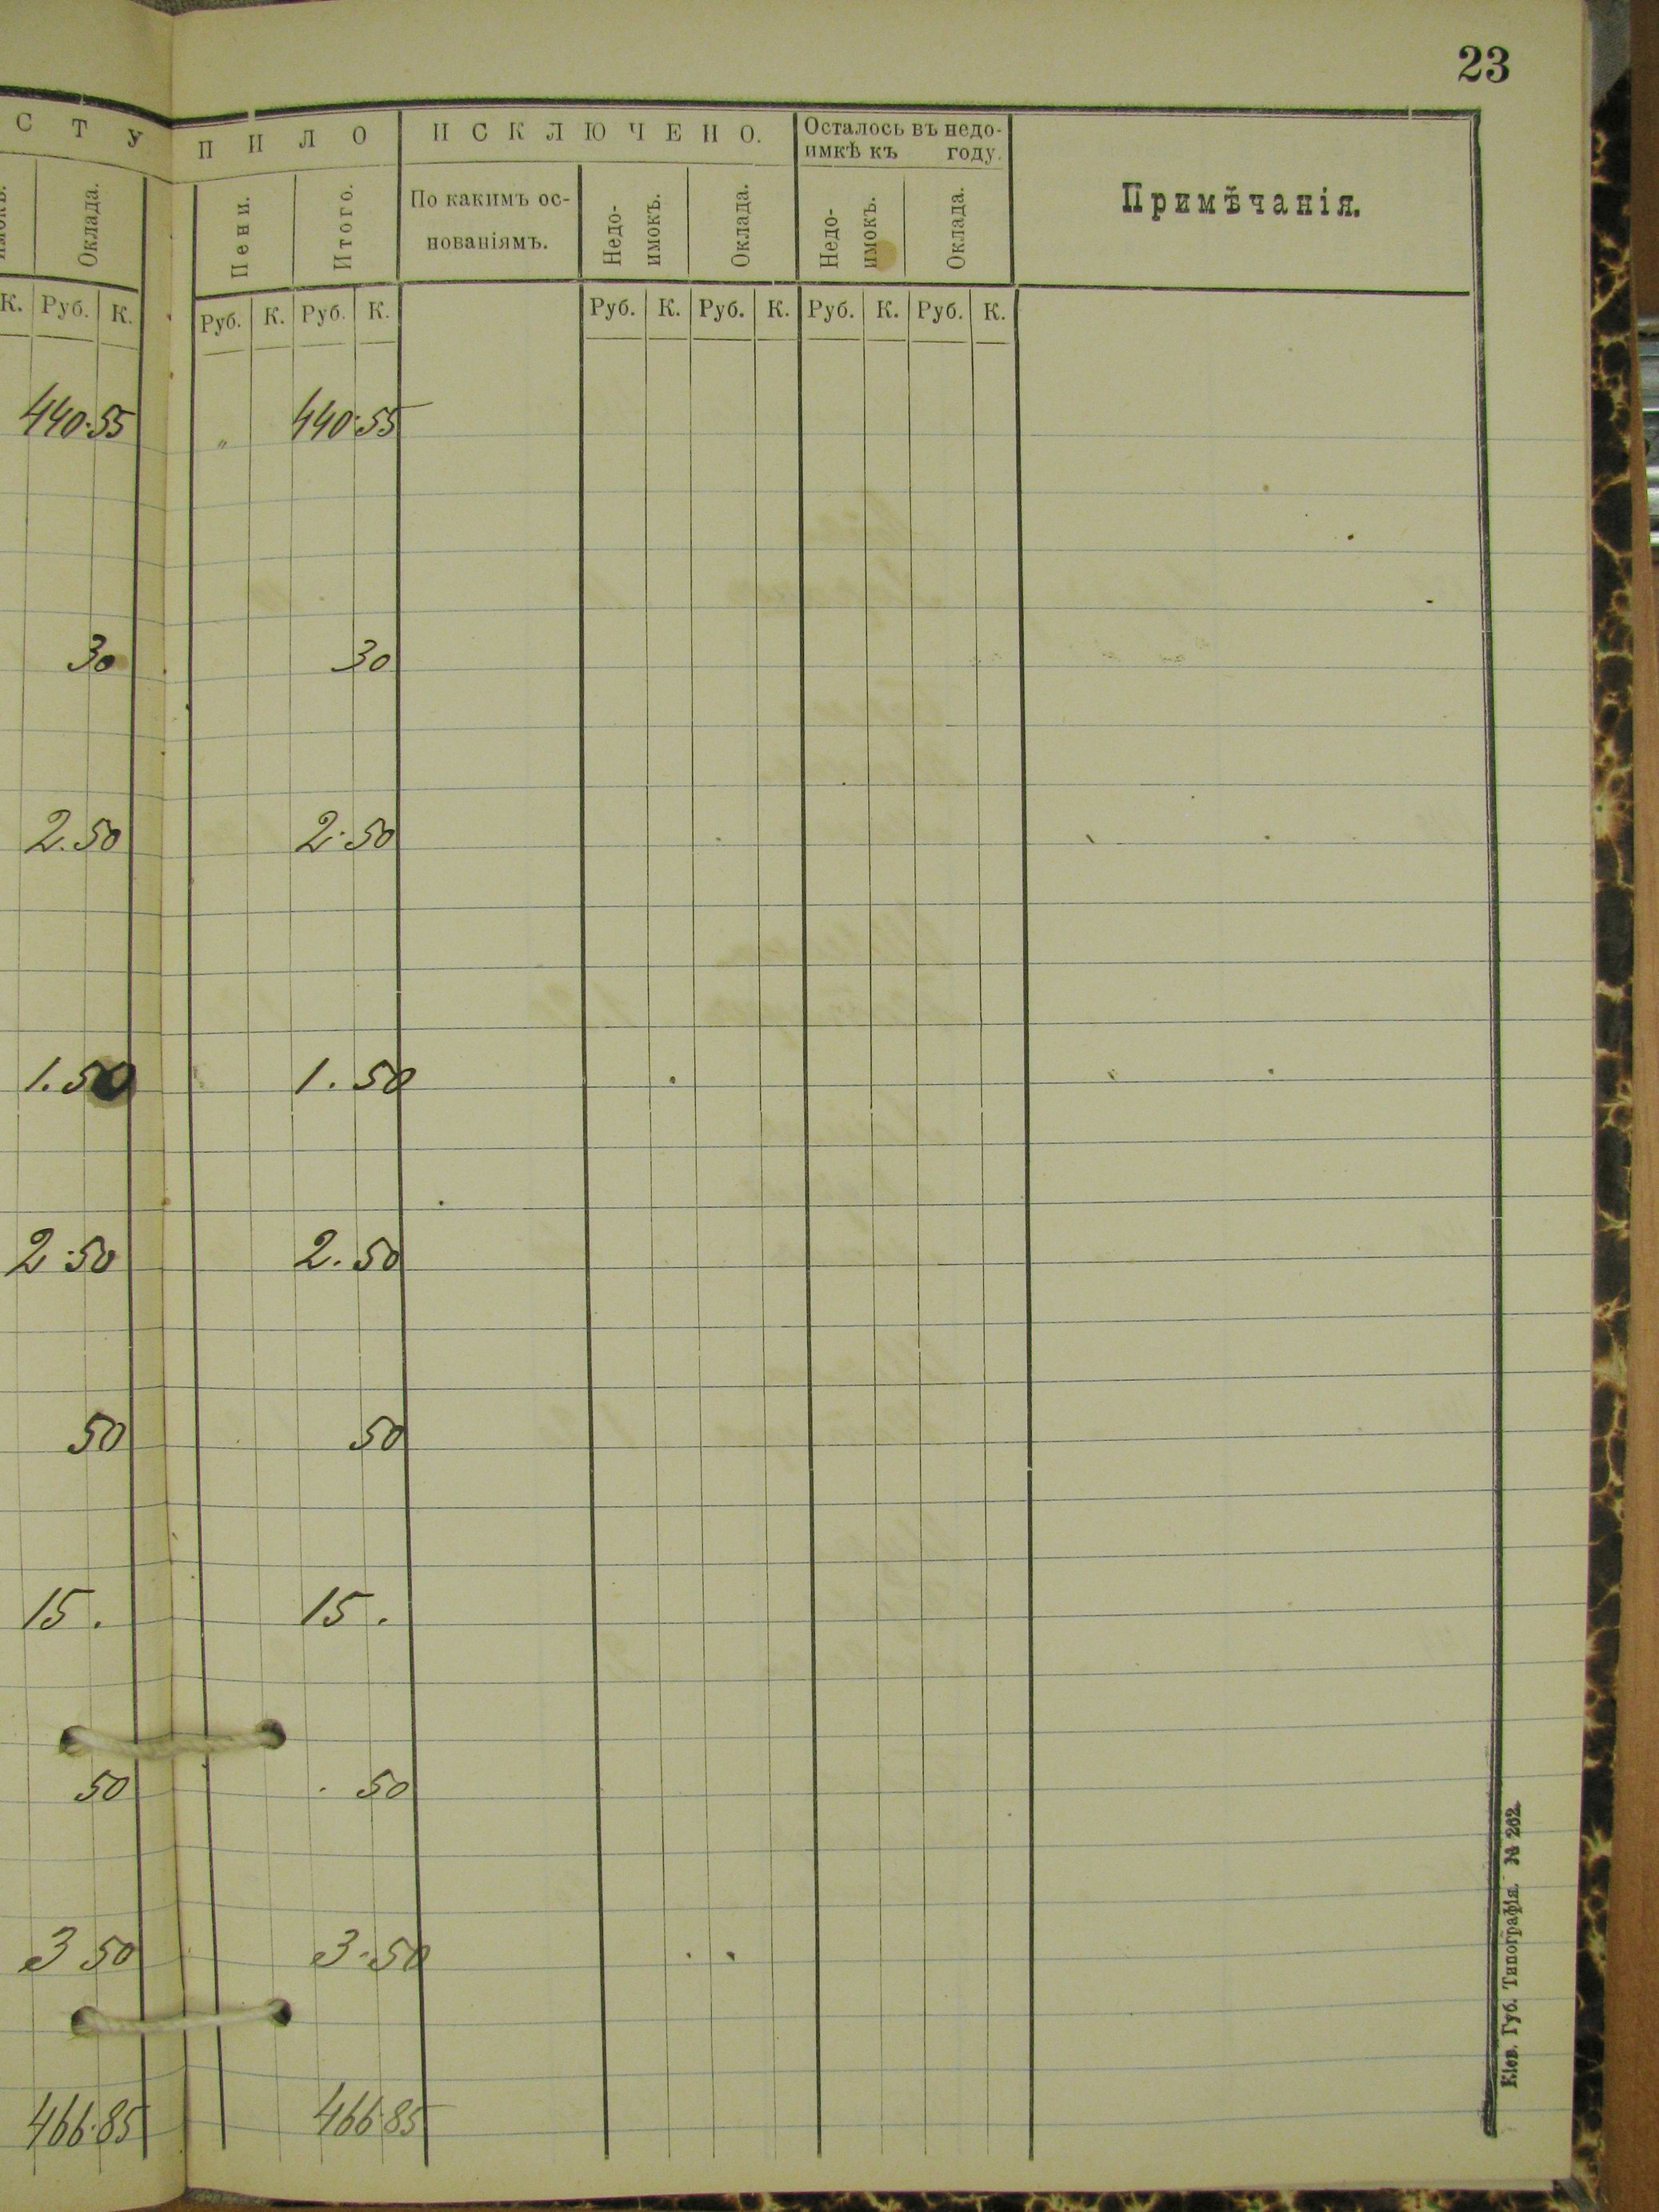 23
С Т У П И Л О
И С К Л Ю Ч Е Н О.
Осталось въ недо-
имкѣ къ году.
Примѣчанія.
Оклада.
Пени.
Итого.
По какимъ ос-
нованіямъ.
Недо-
имокъ.
Оклада.
Недо-
имокъ.
Оклада.
К. Руб. К. Руб. К. Руб. К. Руб. К. Руб. К. Руб. К. Руб. К.
440.55 „ 440.55
30 30
2.50 2.50
1.50 1.50
2.50 2.50
50 50
15. 15.
50 . 50
3 50 3.50
466.85 466.85
Кіев. Губ. Типографія. № 262.